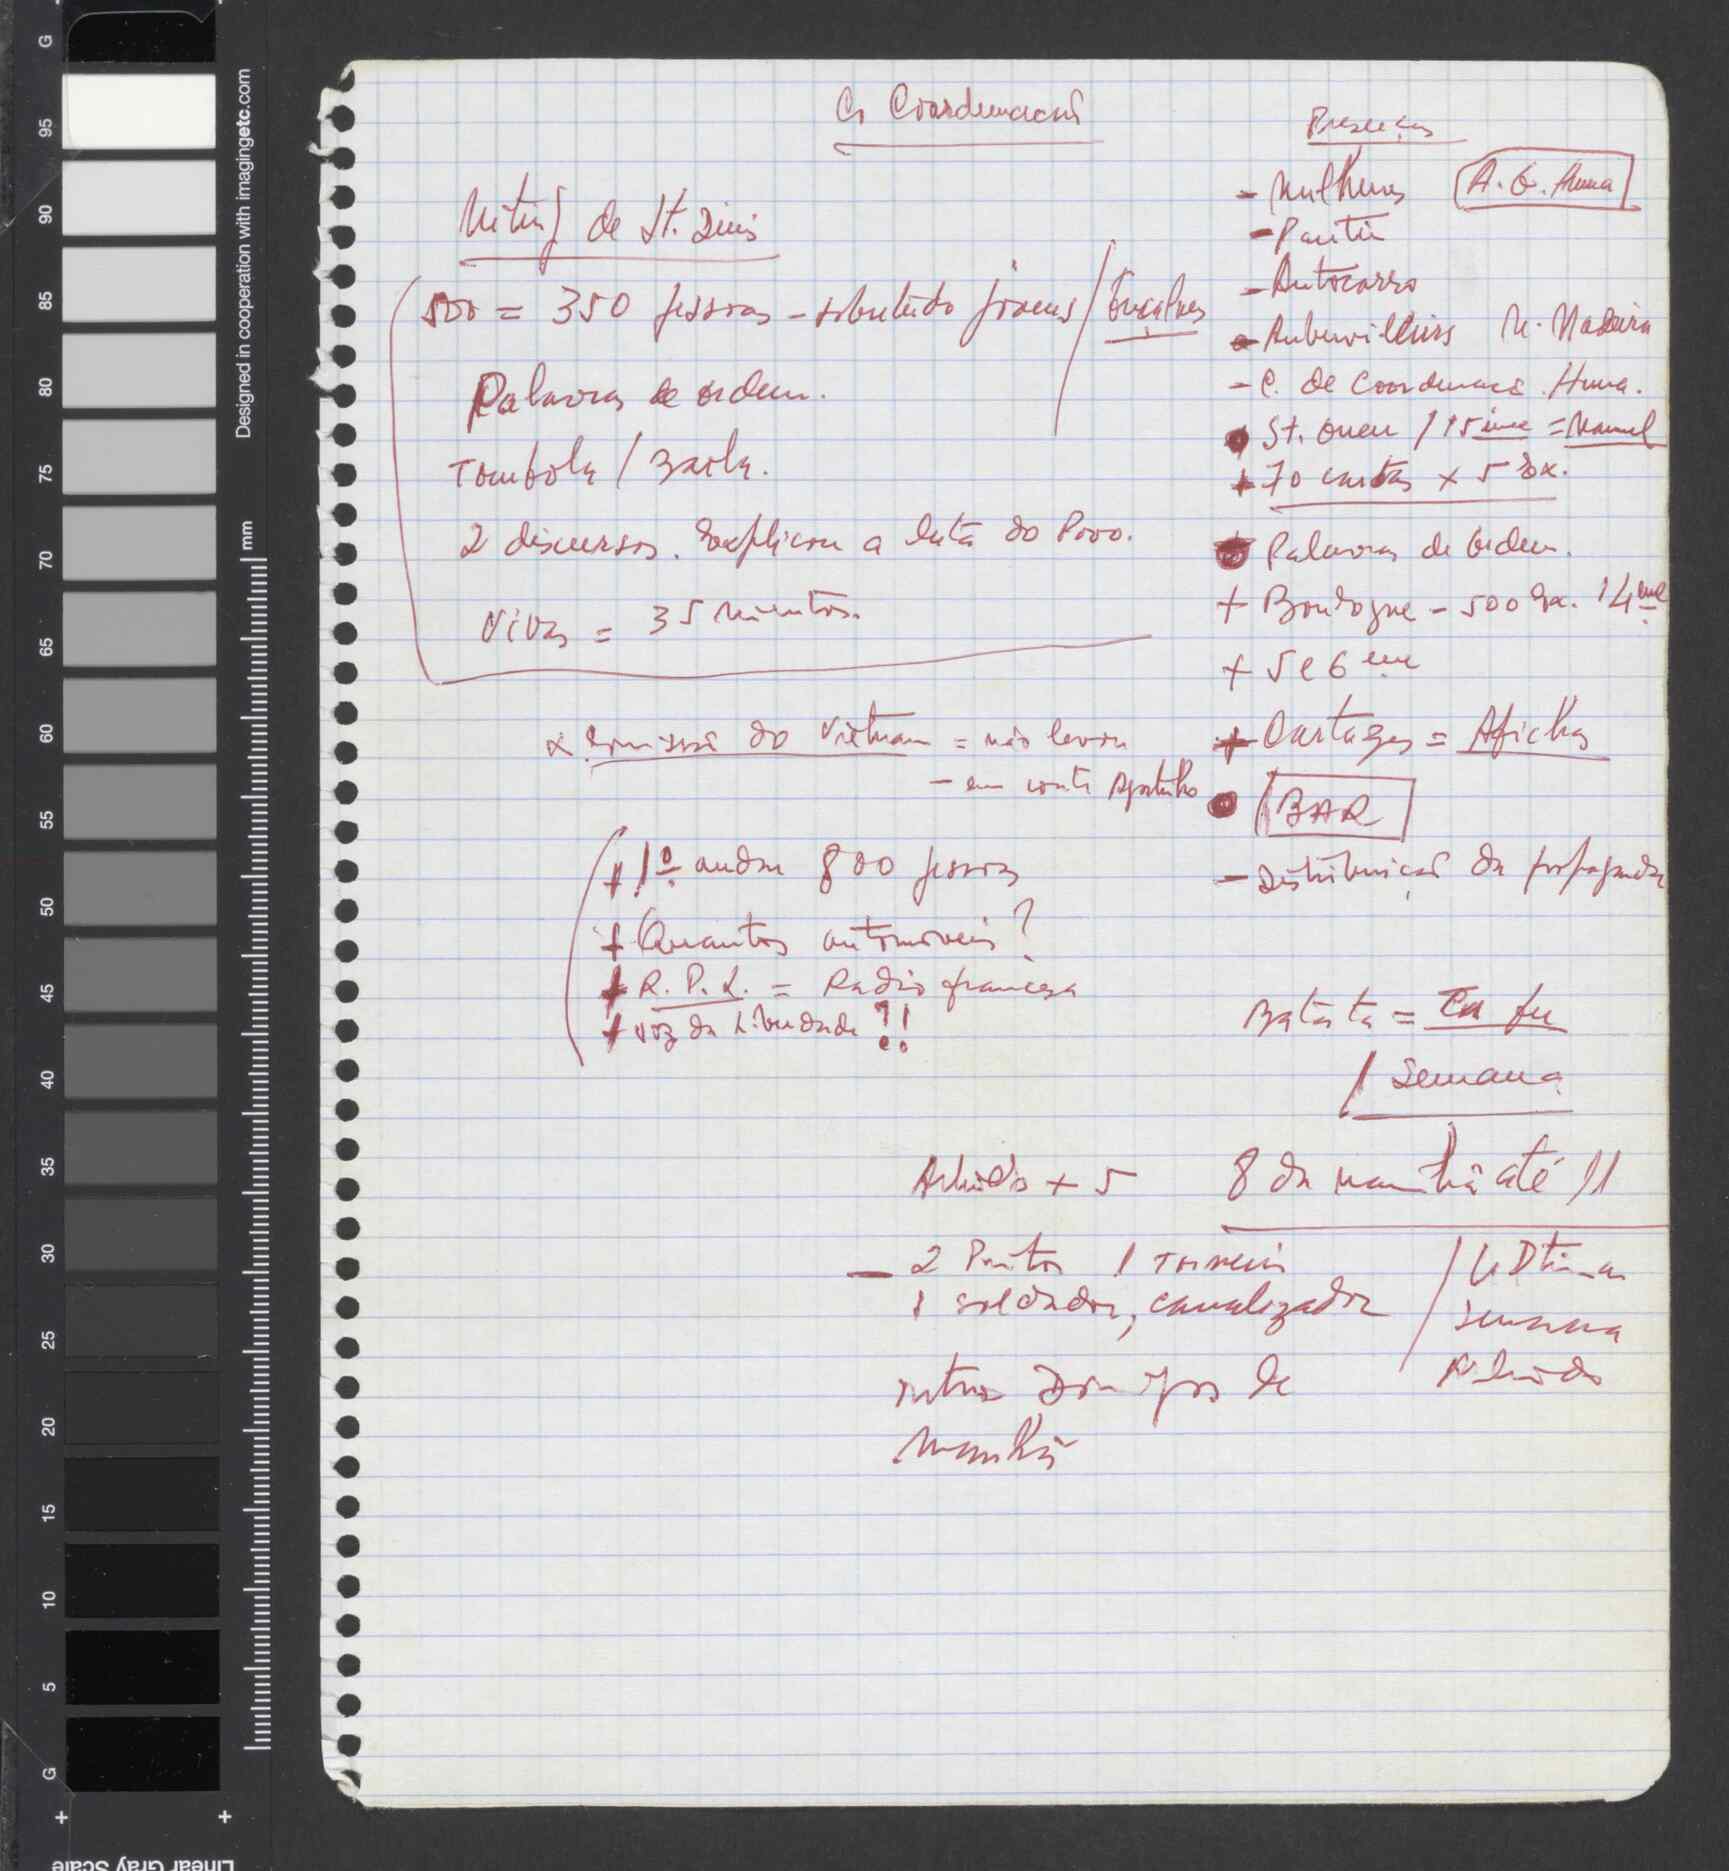 Coordenação
Miting de St. Dinis
500 = 350 pessoas - sobretudo jovens /
Palavras de ordem.
Tombola / Baile.
2 discursos. Explicou a luta do Povo.
Vivas = 35 minutos.
x Emissão do Vietnam = não levou
- em conta
+ 1º andar 800 pessoas
+ Quantos automoveis?
+ R. P. L. = Radio francesa
+ voz da Liberdade ?!
Presenças
- Mulheres A. G. Huma
- Pantin
- Autocarro
- Aubervilliers M. Madeira
- C. de Coordenação Huma.
St. Ouen / 15 ème = Manuel
+ 70 cartas x 5 Ex.
Palavras de ordem.
+ Boulogne - 500 Ex. 14 ème
+ 5 e 6 ème
+ Cartazes = Afichas
BAR
- Distribuição da propaganda
Batata =
1 semana
+ 5
8 da manhã até 11
- 2 1 Torneiro
1 soldador, canalizador
/ Ultima
semana
outros Domingos de
manhã
Designed in cooperation with imagingetc.com
mm
G
95
90
85
80
75
70
65
60
55
50
45
40
35
30
25
20
15
10
5
G
Linear Gray Scale